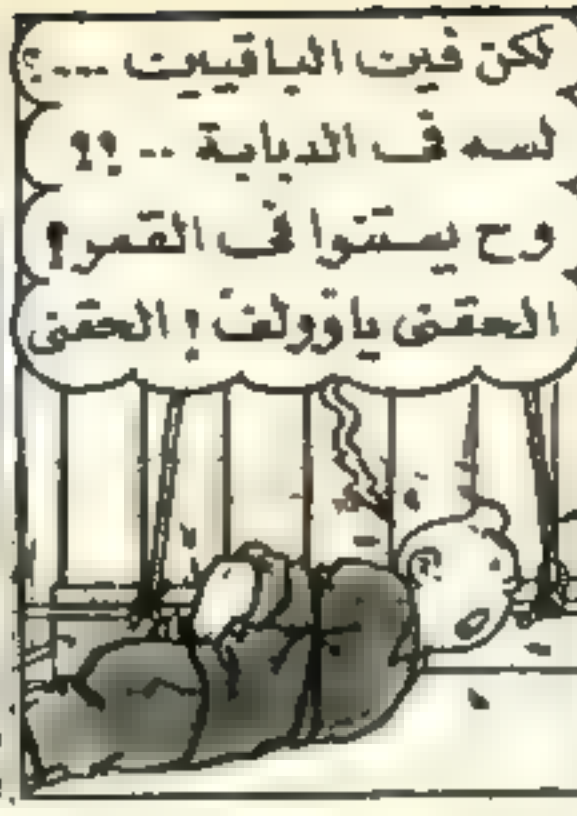 لكن فين الباقيين ...؟
لسه ف الدبابة .. !؟
وح يستنوا ف القمر !
الحقنى يا وولف ! الحقنى